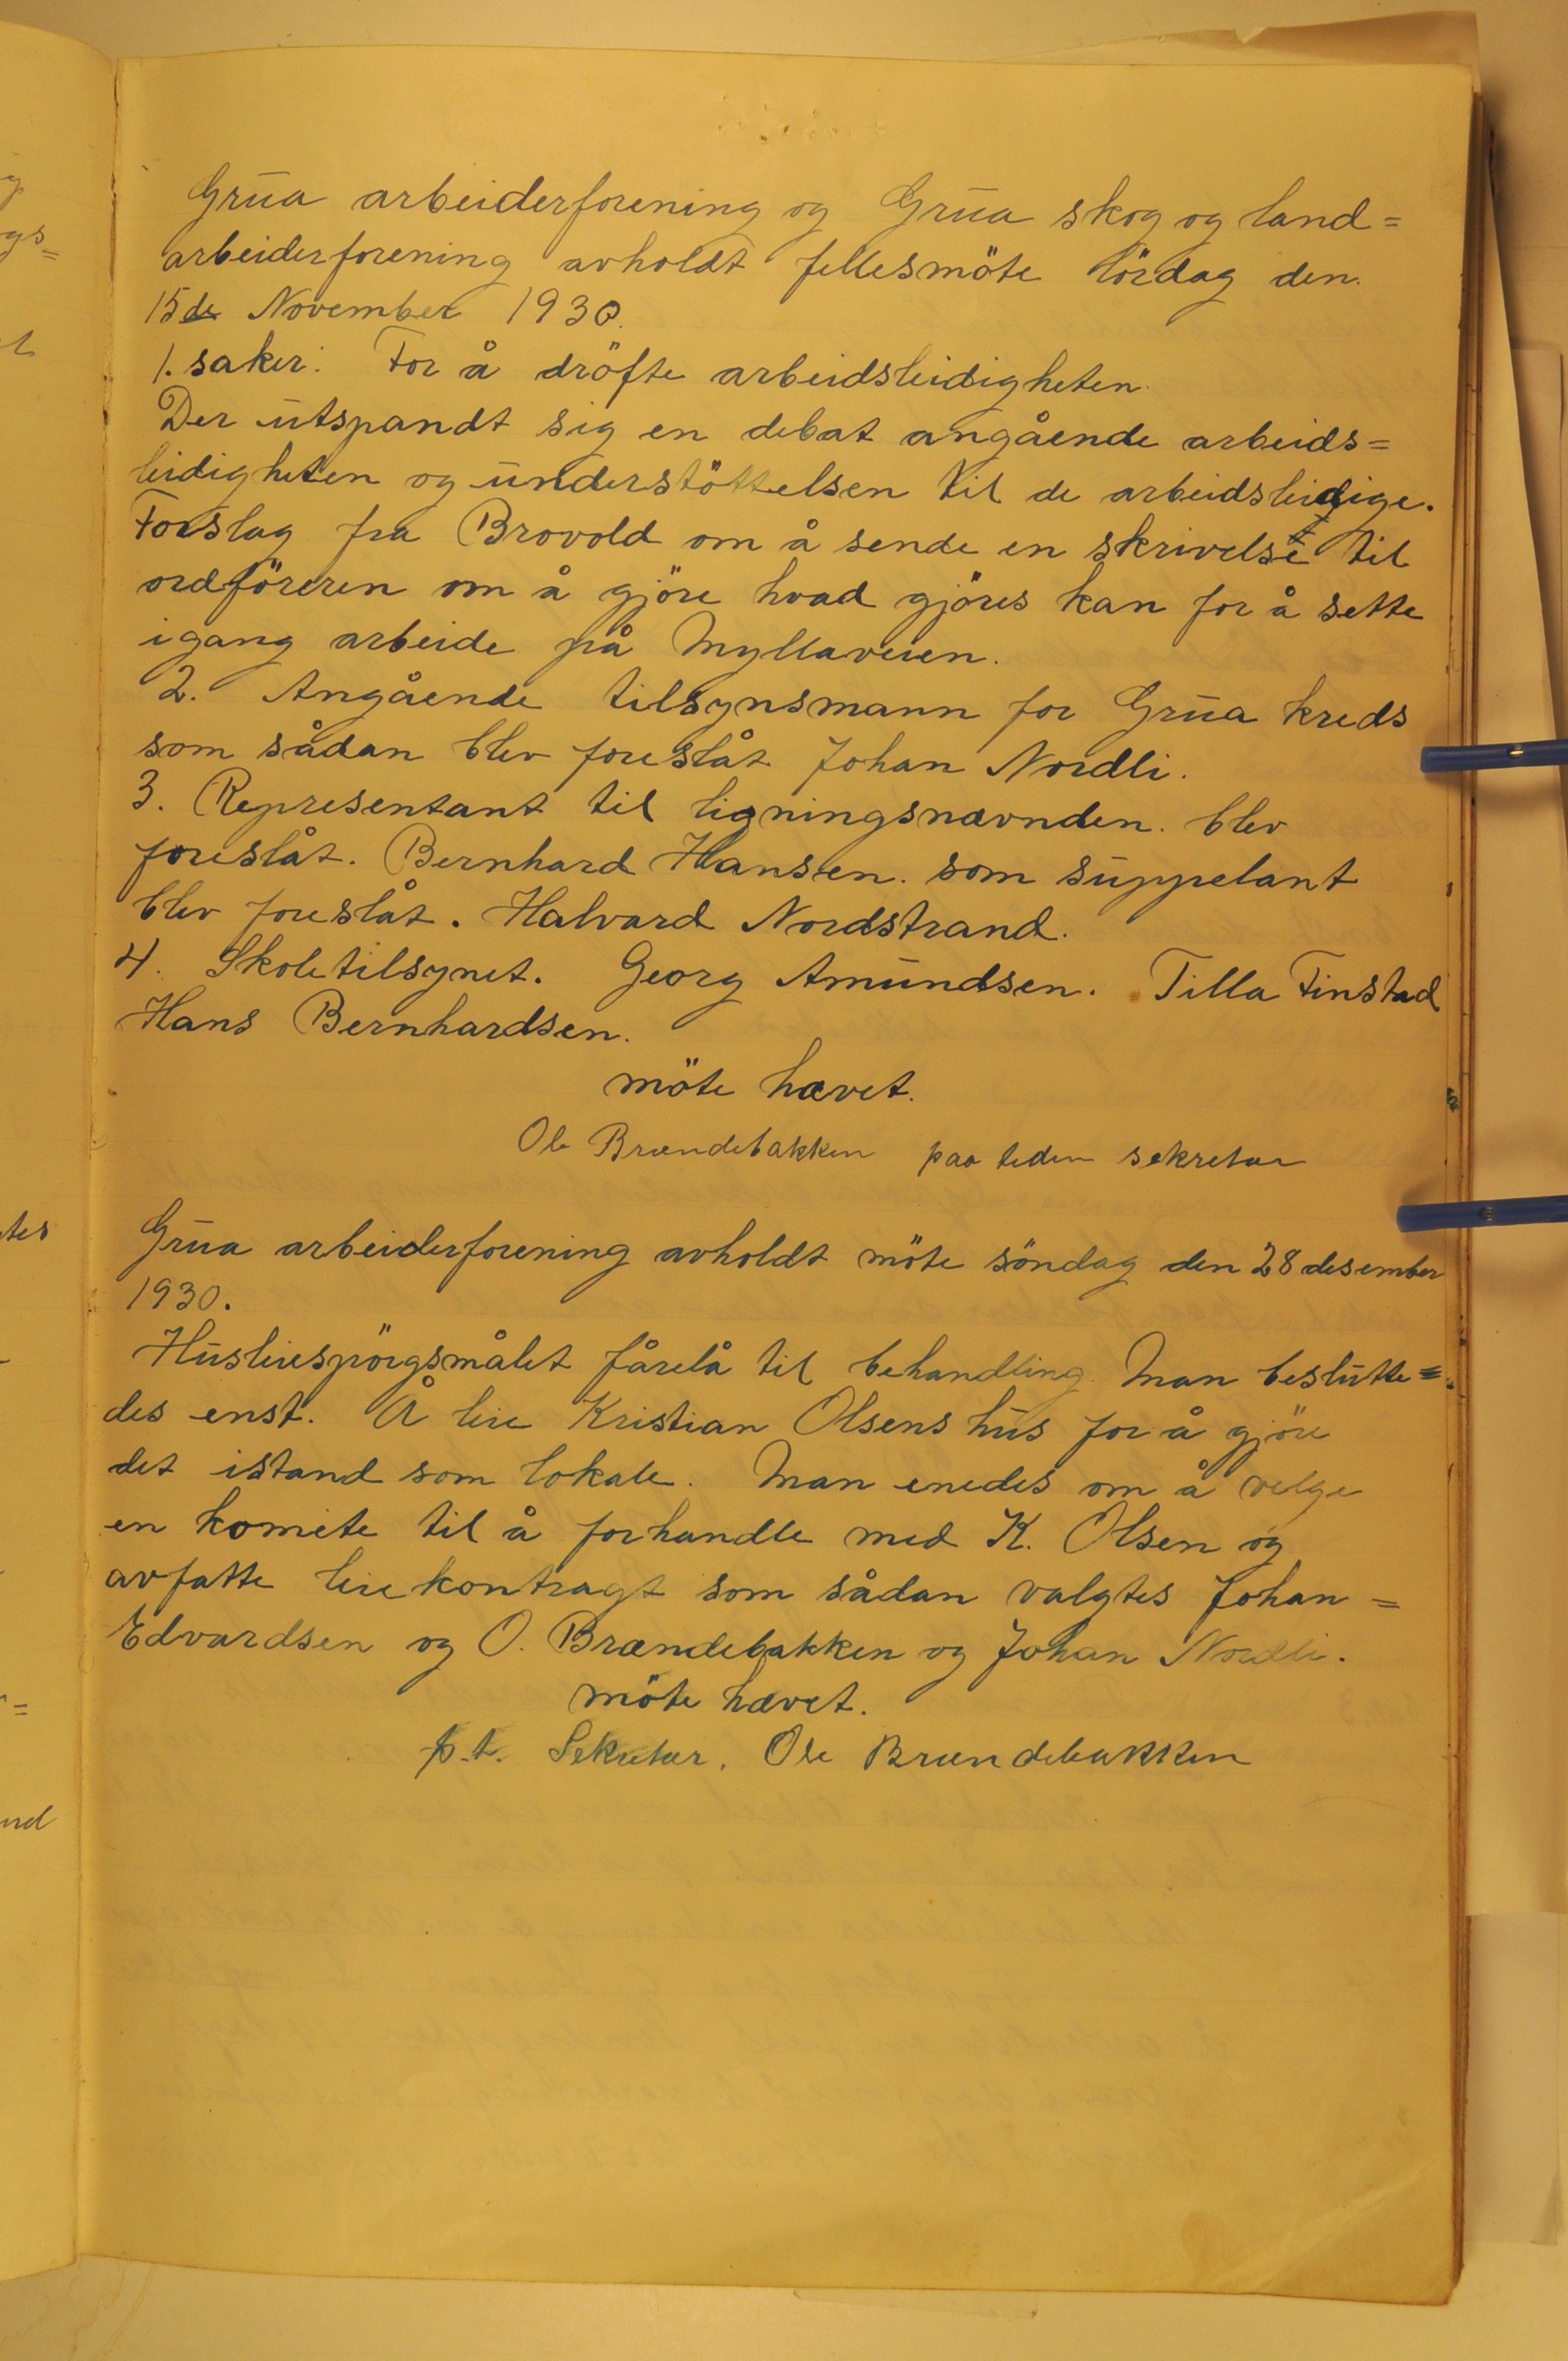 Grua arbeiderforening og Grua skog og land=
arbeiderforening avholdt fellesmöte lördag den.
15de November 1930.
1. saker: For å dröfte arbeidsleidigheten.
Der utspandt sig en debat angående arbeids=
leidigheten og understöttelsen til de arbeidsleidige.
Forslag fra Brovold om å sende en skrivelse til
ordföreren om å gjöre hvad gjöres kan for å sette
igang arbeide på Myllaveien.
2. Angående tilsynsmann for Grua kreds
som sådan blev foreslåt Johan Nordli.
3. Representant til ligningsnævnden. blev
foreslåt. Bernhard Hansen. som suppelant
blev foreslåt. Halvard Nordstrand.
4. Skoletilsynet. Georg Amundsen. Tilla Finstad
Hans Bernhardsen.
möte hævet.
Ole Brændebakken paa tiden sekretær
Grua arbeiderforening avholdt möte söndag den 28 desember
1930.
Husleiespörgsmålet fårelå til behandling. Man beslutte=
des enst. Å leie Kristian Olsens hus for å gjöre
det istand som lokale. Man enedes om å velge
en komite til å forhandle med K. Olsen og
avfatte leiekontragt som sådan valgtes Johan =
Edvardsen og O. Brændebakken og Johan Nordli.
möte hævet.
p.t. Sekretær. Ole Brændebakken